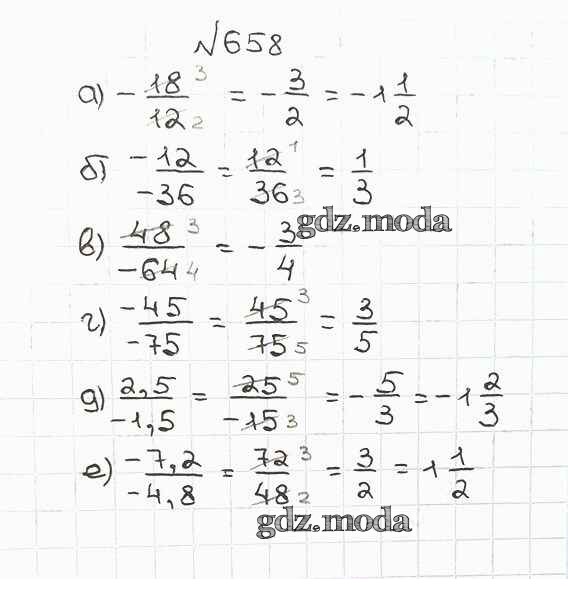 №658
а) - 18 3 / 12 2 = - 3/2 = -1 1/2
б) -12/-36 = 12 1 / 36 3 = 1/3
gdz.moda
в) 48 3 / -64 4 = - 3/4
г) -45/-75 = 45 3 / 75 5 = 3/5
д) 2,5/-1,5 = 25 5 / -15 3 = - 5/3 = -1 2/3
е) -7,2/-4,8 = 72 3 / 48 2 = 3/2 = 1 1/2
gdz.moda